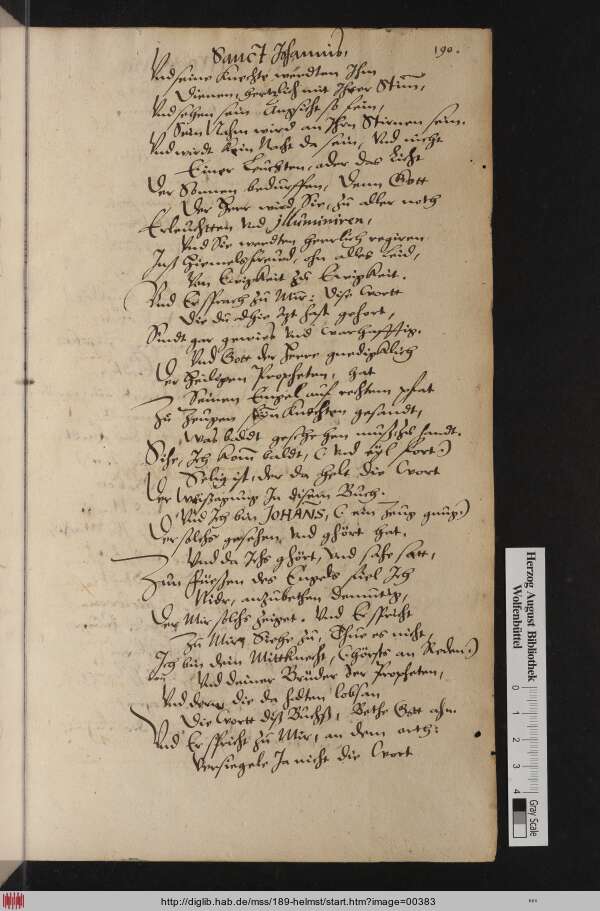 Sanct Johannis,
190.
Vnd seine Knechte werdten Ihm
Dienen, hertzlich mit Ihrer Stim,
Vnd sehen sein Angsicht so fein,
Sein Nahm wird an Ihrn Stirnen sein.
Vnd wirdt kein Nacht da sein, Vnd nicht
Einer Leuchten, oder des Licht
Der Sonnen bedurffen, Denn Gott
Der Herr wird Sie, zu aller noth
Erleuchtten vnd jlluminiren,
Vnd Sie werdten herrlich regiren
Inß Himelsfreud, ohn alles Leid,
Von Ewigkeit zu Ewigkeit.
Vnd Er sprach zu Mir: Dise Wortt
Die du alhie itzt hast gehort,
Sindt gar gewies vnd warhafftig.
Vnd Gott der Herre gnedigklich
Der Heiligen Propheten, hat
Seinen Engel auf rechtem pfat
Zu Zeugen sein Knechten gesandt,
Was baldt geschehen muß, zu handt.
Sihe, Ich Kom baldt, (vnd eyl fort.)
Selig ist, der da helt die Wort
Der Weissagung In disem Buch.
Vnd Ich bin JOHANS, (ein Zeug gnug.)
Der solchs gesehen, vnd ghört hat.
Vnd da Ichs ghört, vnd sahe satt,
Zun Füessen des Engels fiel Ich
Nidr, anzubethen demuttig,
Der Mir solchs zeiget. Vnd Er spricht
Zu Mir, Siehe zu, Thue es nicht,
Ich bin dein Mittknecht, (hörsts an Reden.)
Vnd deiner Brüder der Propheten,
Vnd derer die da hidten lobsan
Die Wortt diß Buchß, Bethe Gott ahn.
Vnd Er spricht zu Mir, an dem orth:
Versiegele Ja nicht die Wort
Herzog August Bibliothek
Wolfenbüttel
0 1 2 3 4
Gray Scale
http://diglib.hab.de/mss/189-helmst/start.htm?image=00383